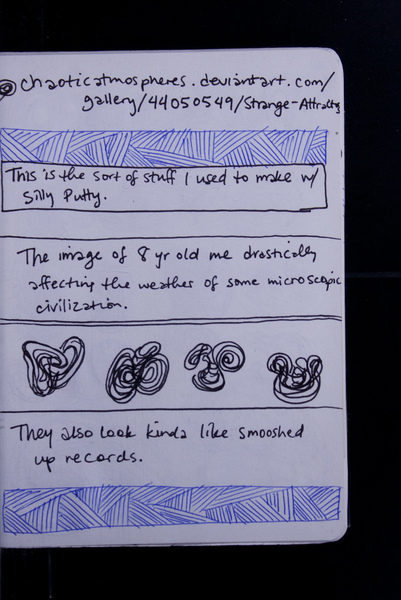 chaoticatmospheres.deviantart.com/
gallery/44050549/Strange-Attrators
This is the sort of stuff I used to make w/
Silly Putty.
The image of 8 yr old me drastically
affecting the weather of some microscopic
civilization.
They also look kinda like smooshed
up records.